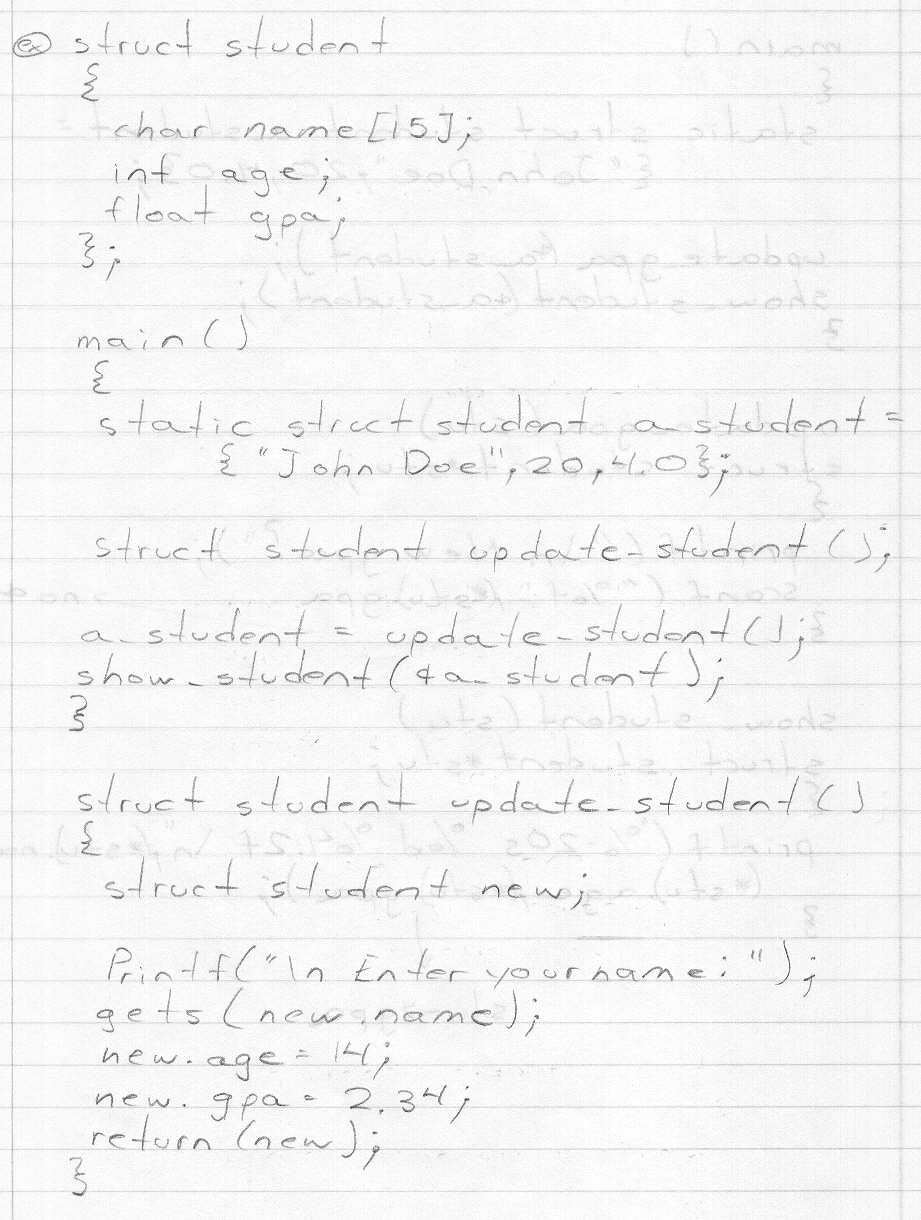 ex struct student
{
char name[15];
int age;
float gpa;
};
main()
{
static struct student a_student =
{"John Doe", 20, 4.0};
struct student update_student();
a_student = update_student();
show_student(&a_student);
}
struct student update_student()
{
struct student new;
Printf("\n Enter your name: ");
gets(new.name);
new.age = 14;
new.gpa = 2.34;
return (new);
}